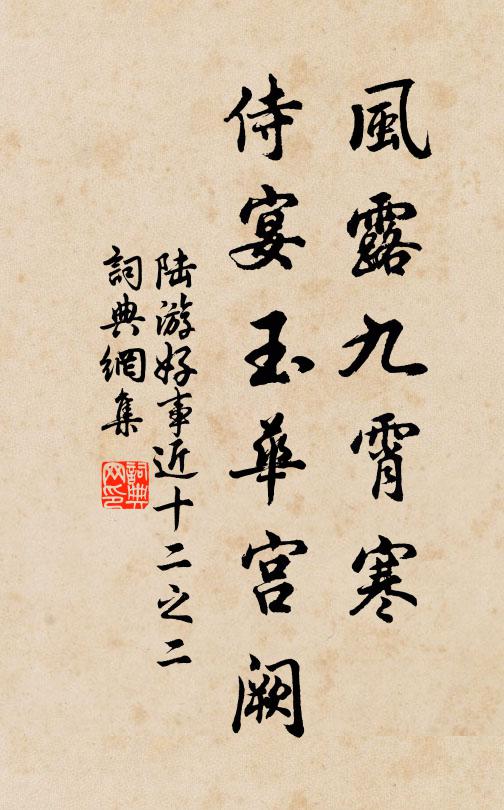 風露九霄寒
侍宴玉華宮闕
陆游好事近十二之二
詞典網集
詞典网印